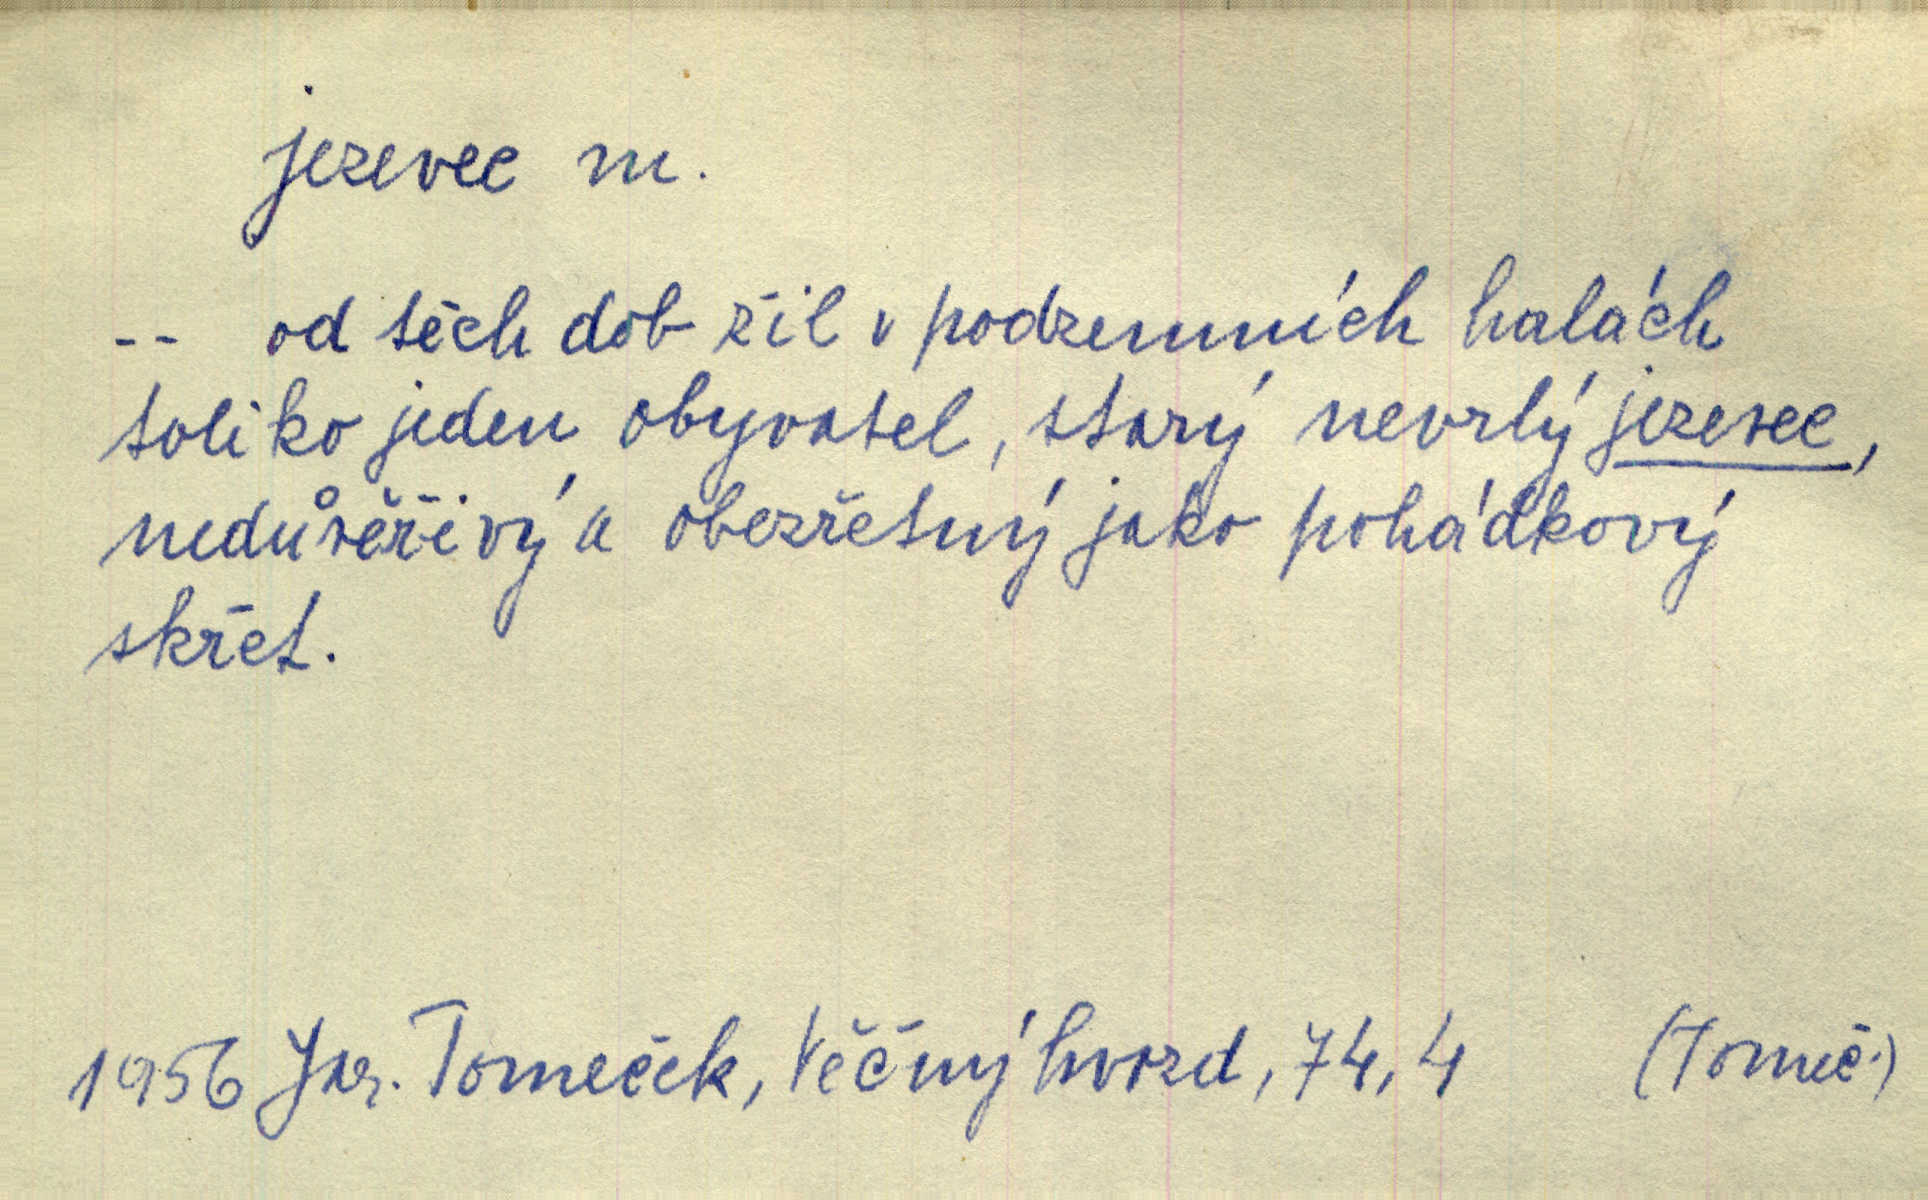 jezevec m.
-- od těch dob žil v podzemních halách
toliko jeden obyvatel, starý nevrlý jezevec,
nedůvěřivý a obezřetný jako pohádkový
skřet.
1956 Jar. Tomeček, Věčný hvozd, 74, 4 (Tomeč.)